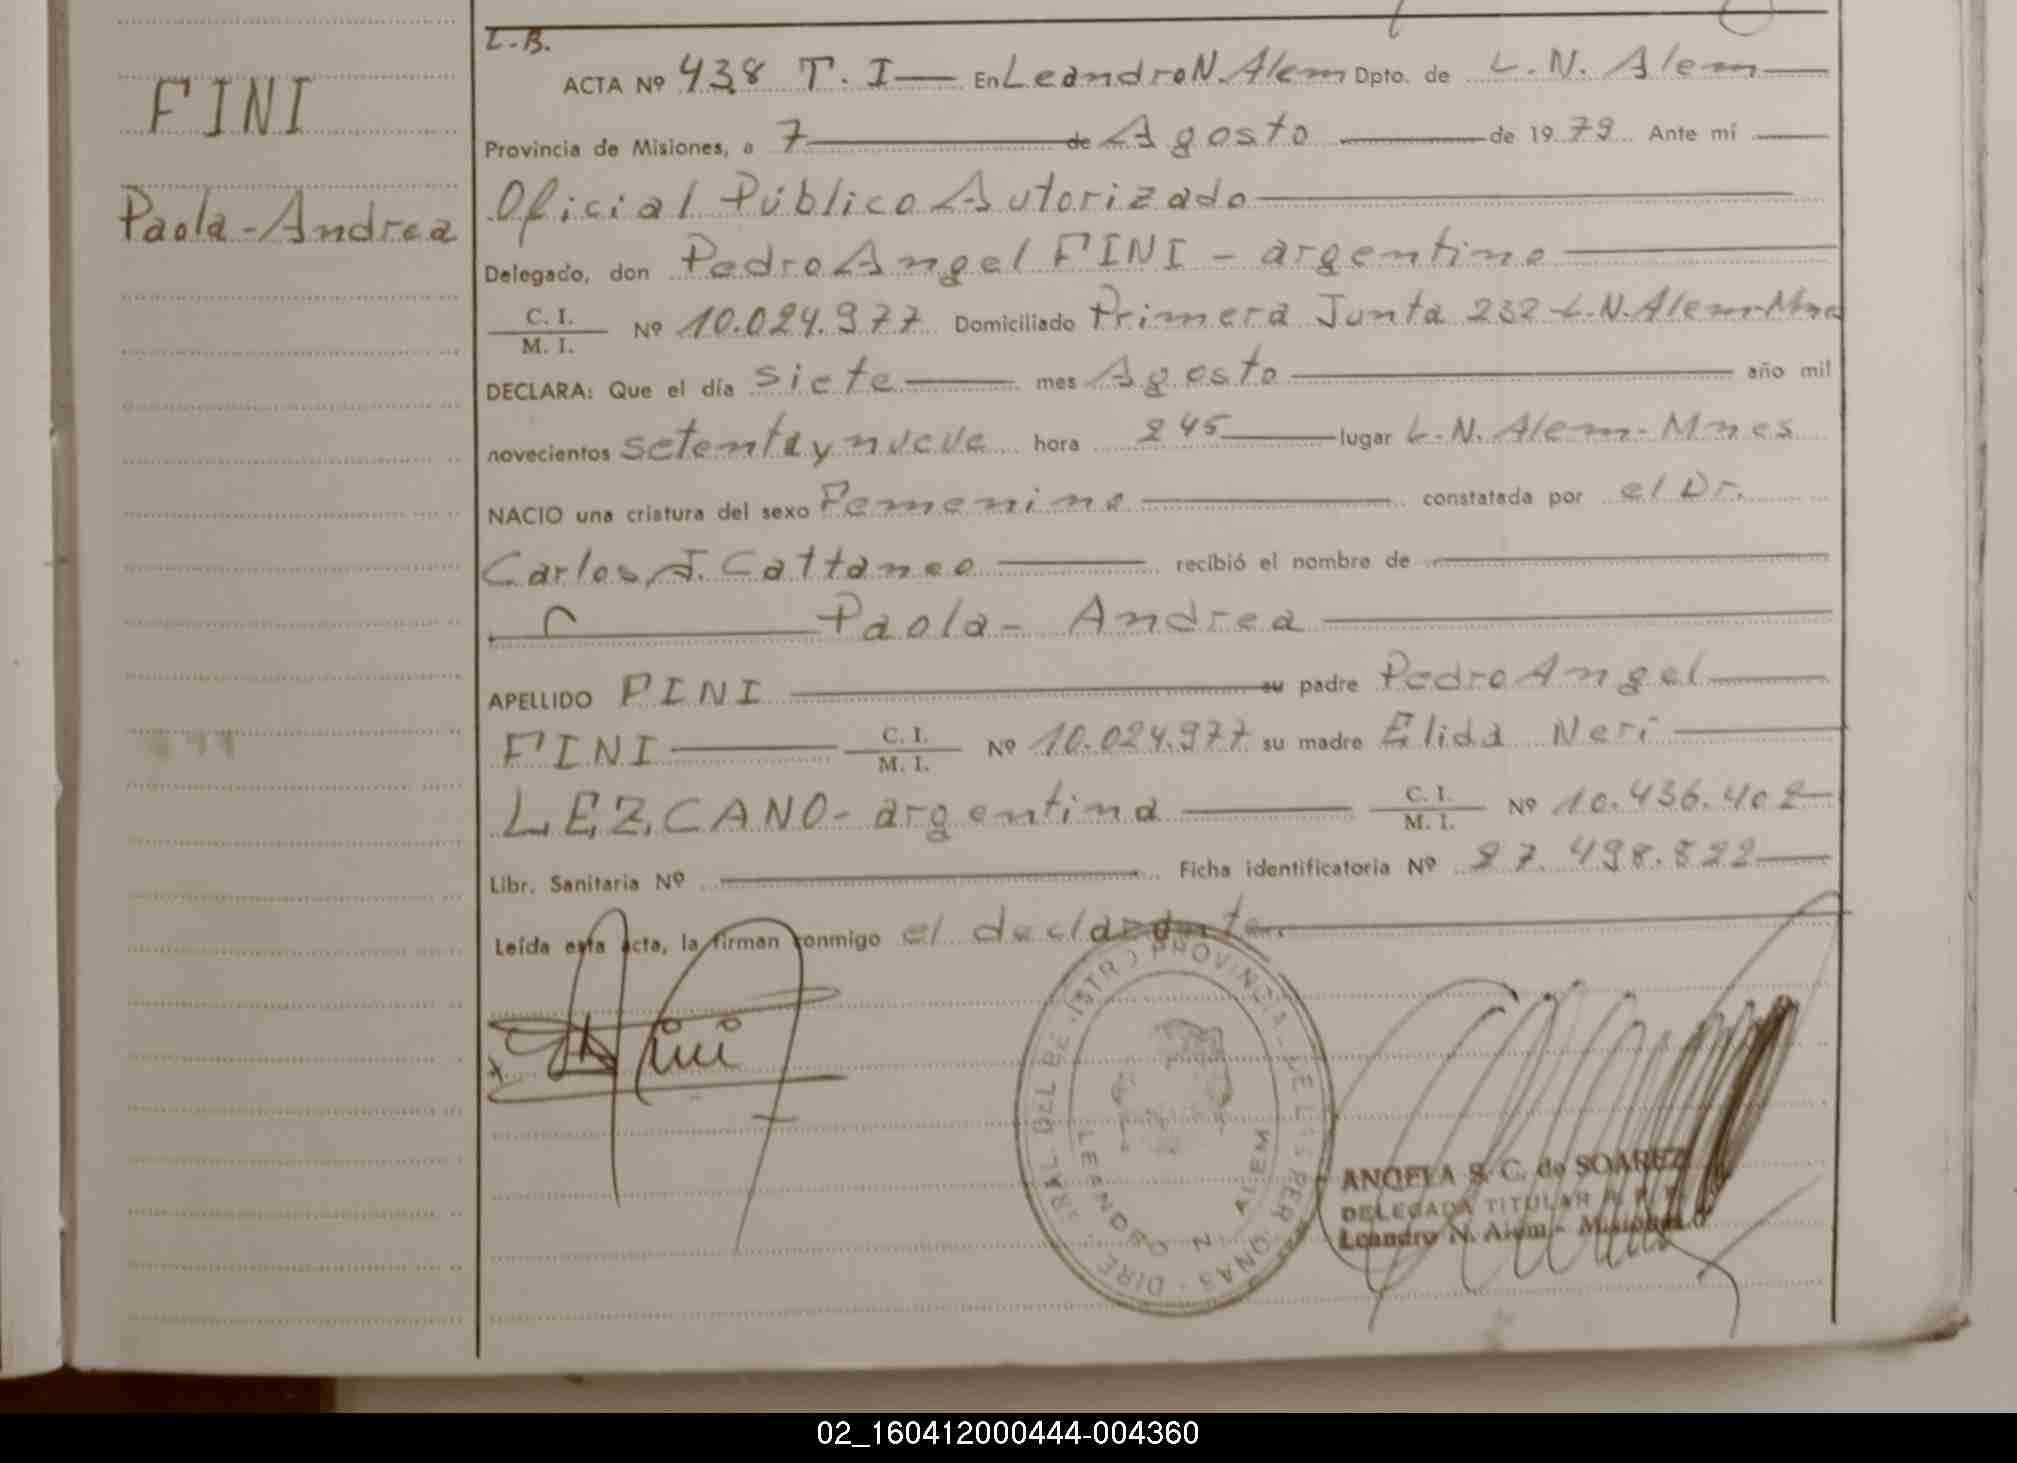 FINI
Paola-Andrea
L.B.
ACTA Nº 438 T. I — En Leandro N. Alem Dpto. de L. N. Alem
Provincia de Misiones, a 7 de Agosto de 1979 Ante mí
Oficial Público Autorizado
Delegado, don Pedro Angel FINI - argentino
C. I. / M. I. Nº 10.024.977 Domiciliado Primera Junta 232 - L.N. Alem - Mnes
DECLARA: Que el día siete mes Agosto año mil
novecientos setenta y nueve hora 245 lugar L. N. Alem - Mnes
NACIO una criatura del sexo Femenino constatada por el Dr.
Carlos J. Cattaneo recibió el nombre de
Paola - Andrea
APELLIDO FINI su padre Pedro Angel
FINI C. I. / M. I. Nº 10.024.977 su madre Elida Neri
LEZCANO - argentina C. I. / M. I. Nº 10.436.402
Libr. Sanitaria Nº Ficha identificatoria Nº 27.498.522
Leída esta acta, la firman conmigo el declarante.
PROVINCIAL DE
LEANDRO N. ALEM
ANGELA S. C. de SOAREZ
DELEGADA TITULAR
Leandro N. Alem - Misiones
02_160412000444-004360